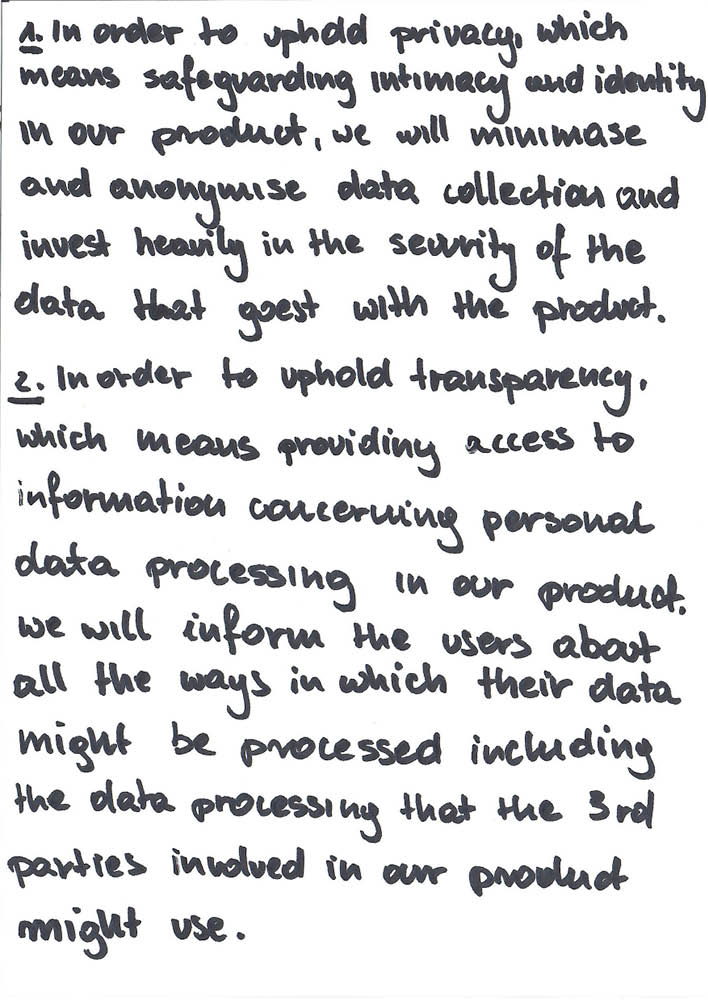 1. In order to uphold privacy, which
means safeguarding intimacy and identity
in our product, we will minimase
and anonymise data collection and
invest heavily in the security of the
data that goest with the product.
2. In order to uphold transparency,
which means providing access to
information concerning personal
data processing in our product,
we will inform the users about
all the ways in which their data
might be processed including
the data processing that the 3rd
parties involved in our product
might use.